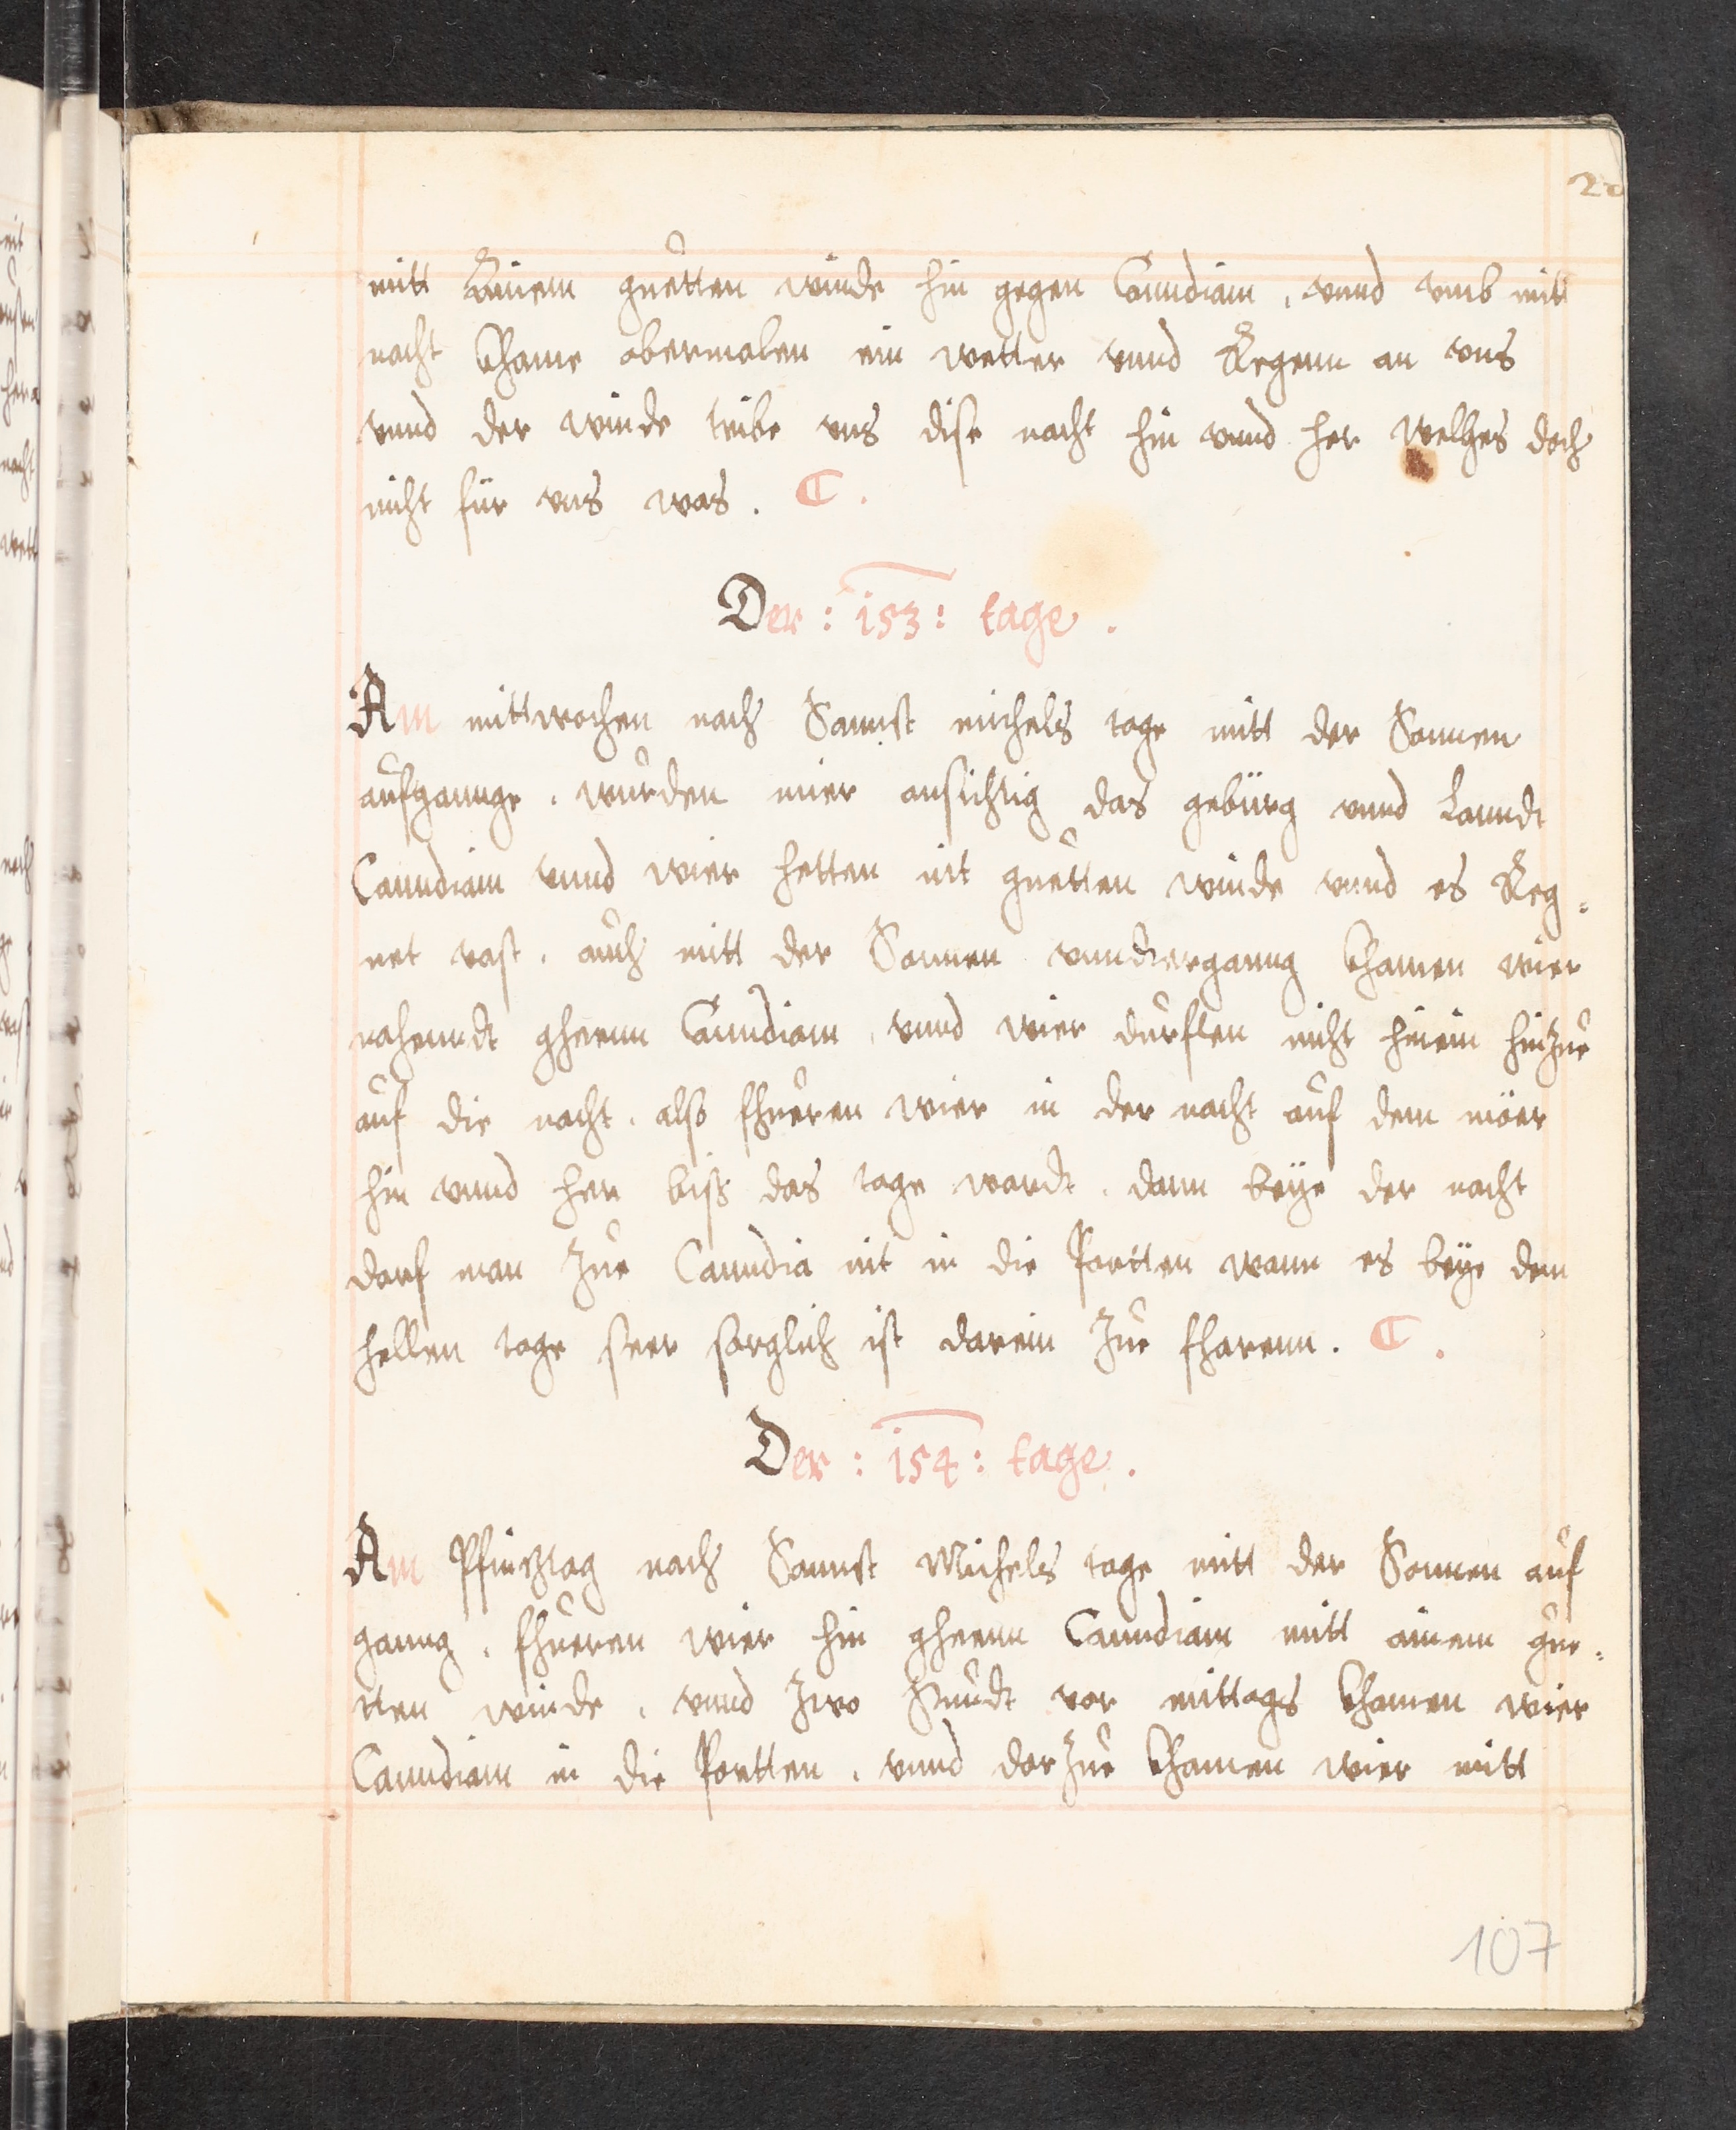 20
mitt Ainem guetten winde hin gegen Canndiam, vnnd vmb mitt
nacht khame abermalen ein wetter vnnd Regenn an vns
vnnd der winde tribe vns dise nacht hin vnnd her welhes doch
nicht für vns was. C.
Der : 153 : tage.
Am mittwochen nach Sannct michels tage mitt der Sonnen
aufgannge. wurden mier ansichtig das gebürg vnnd Lanndt
Canndiam vnnd wier hetten nit guetten winde vnnd es Reg=
net vast. auch mitt der Sonnen vnndterganng khamen wier
nahenndt gheenn Canndiam, vnnd wier durften nicht hinein hinzue
auf die nacht. also fhueren wier in der nacht auf dem möer
hin vnnd her biss das tage wardt. dann beÿe der nacht
darf man zue Canndia nit in die Portten wann es beÿe dem
hellen tage seer sorglich ist darein zue fharenn. C.
Der : 154 : tage.
Am Pfinztag nach Sannct Michels tage mitt der Sonnen auf
ganng. fhueren wier hin gheenn Canndiam mitt ainem gue=
tten winde. vnnd zwo stundt vor mittags khamen wier
Canndiam in die Portten. vnnd darzue khamen wier mitt
107